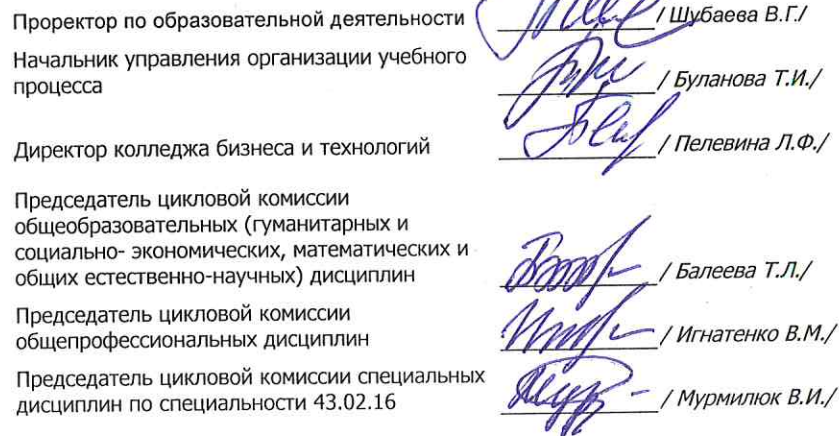 Проректор по образовательной деятельности / Шубаева В.Г./
Начальник управления организации учебного
процесса / Буланова Т.И./
Директор колледжа бизнеса и технологий / Пелевина Л.Ф./
Председатель цикловой комиссии
общеобразовательных (гуманитарных и
социально- экономических, математических и
общих естественно-научных) дисциплин / Балеева Т.Л./
Председатель цикловой комиссии
общепрофессиональных дисциплин / Игнатенко В.М./
Председатель цикловой комиссии специальных
дисциплин по специальности 43.02.16 / Мурмилюк В.И./